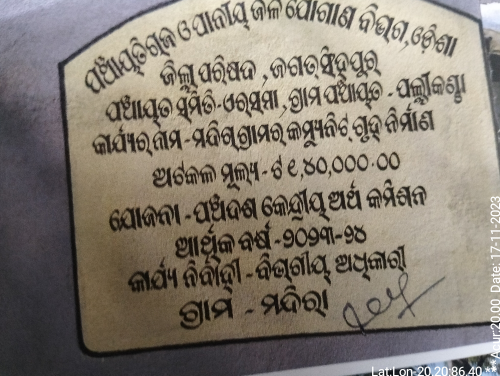 ପଞ୍ଚାୟତିରାଜ ଓ ପାନୀୟ ଜଳ ଯୋଗାଣ ବିଭାଗ, ଓଡ଼ିଶା
ଜିଲ୍ଲା ପରିଷଦ, ଜଗତସିଂହପୁର
ପଞ୍ଚାୟତ ସମିତି-ଏରସମା, ଗ୍ରାମ ପଞ୍ଚାୟତ -
କାର୍ଯ୍ୟର ନାମ - ମନ୍ଦିରା ଗ୍ରାମର କମ୍ୟୁନିଟି ଗୃହ ନିର୍ମାଣ
ଅଟକଳ ମୂଲ୍ୟ - ଟ ୧,୪୦,୦୦୦.୦୦
ଯୋଜନା - ପଞ୍ଚଦଶ କେନ୍ଦ୍ରୀୟ ଅର୍ଥ କମିଶନ
ଆର୍ଥିକ ବର୍ଷ - ୨୦୨୩-୨୪
କାର୍ଯ୍ୟ ନିର୍ବାହୀ - ବିଭାଗୀୟ ଅଧିକାରୀ
ଗ୍ରାମ - ମନ୍ଦିରା
Date: 17-11-2023
Lat:Lon-20.20:86.40